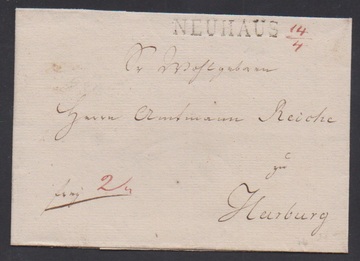 NEUHAUS 14/4
Sr Wohlgeborn
Herrn Amtmann Reiche
zu
Harburg
frey 2/4